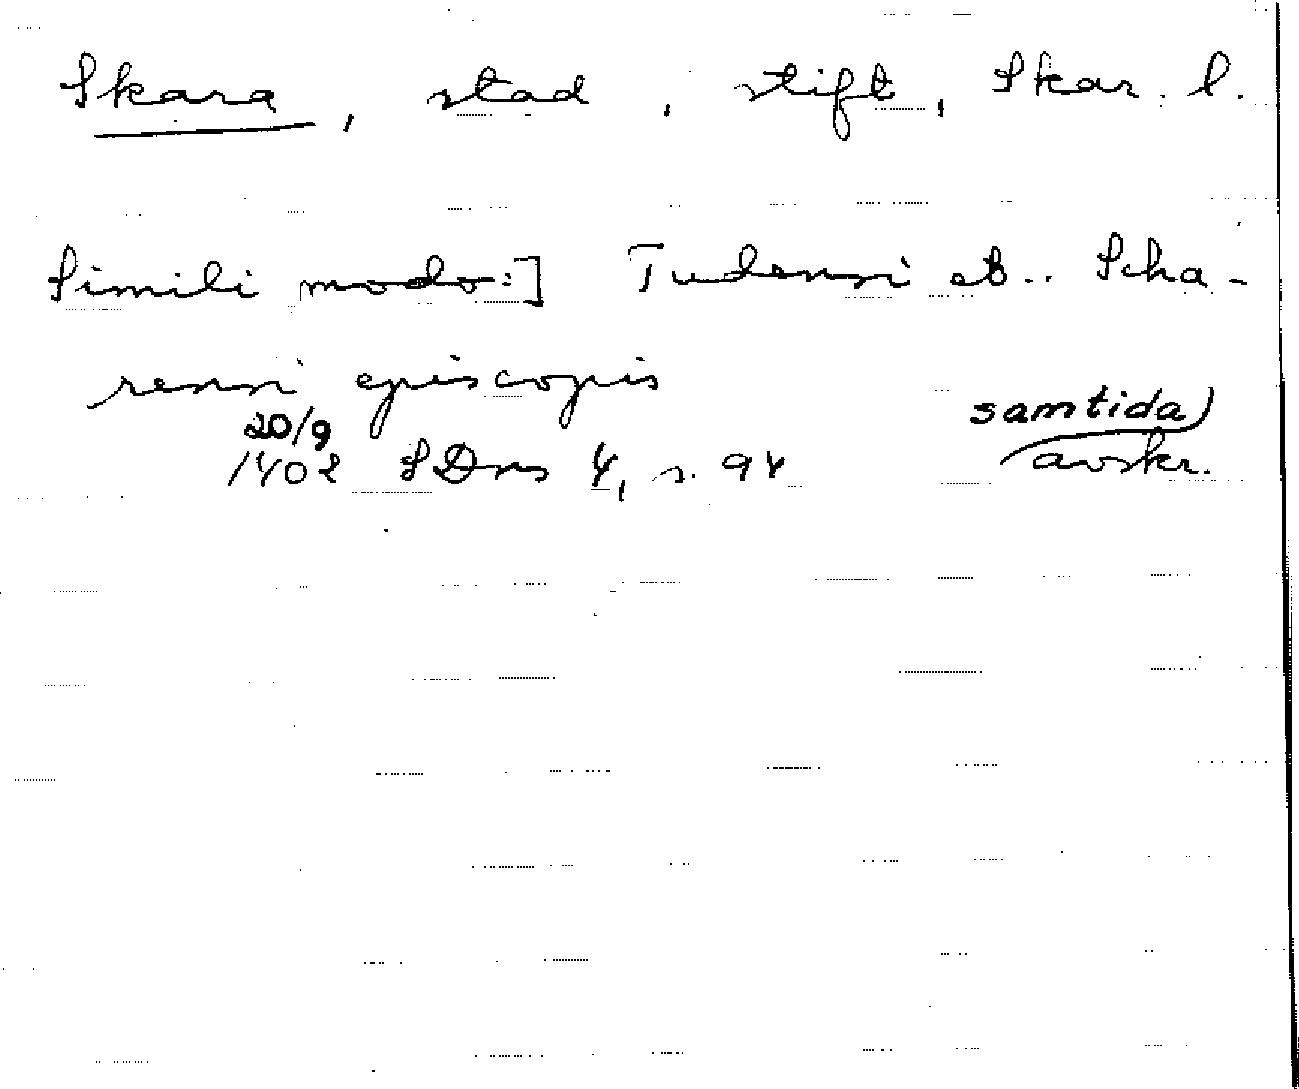 Skara, stad, stift, Skar. l.
Simili modo:] Tudensi et .. Scha-
rensi episcopis
20/9 samtida)
1402 SDns 4, s. 94 avskr.